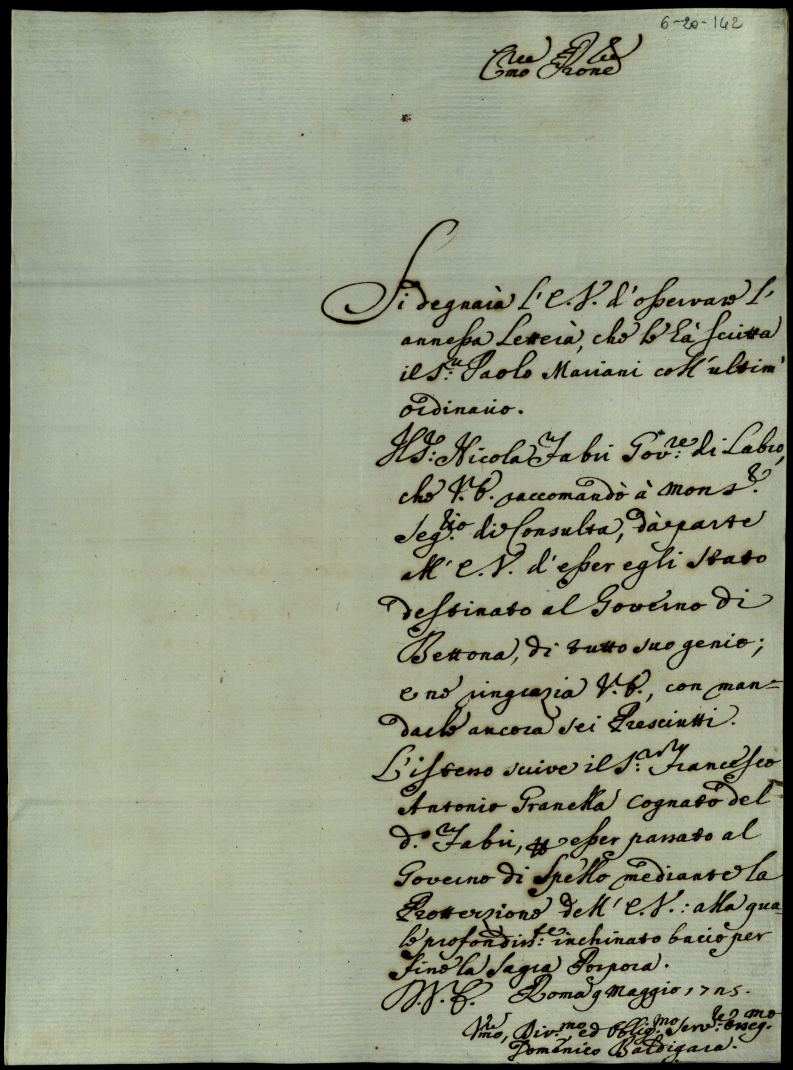 6-20-142
Em.mo P.rone
Si degnarà l'E.V. d'osservare l'
annessa Lettera, che le hà scritta
il S.r Paolo Mariani coll'ultim'
ordinario.
Il S.r Nicola Fabri Gov.re di Labro,
che V.E. raccomandò à Mons.r
Seg.rio di Consulta, dà parte
all'E.V. d'esser egli stato
destinato al Governo di
Bettona, di tutto suo genio;
e ne ringrazia V.E., con man=
darle ancora sei Presciutti.
L'istesso scrive il S.r Francesco
Antonio Granella Cognato del
d.o Fabri, per esser passato al
Governo di Spello mediante la
Protterzione dell'E.V.: alla qua=
le profondis.te inchinato bacio per
fine la Sagra Porpora.
D.V.E. Roma 9 Maggio 1725.
Um.mo, Div.mo ed Oblig.mo Serv.re osseq.mo
Domenico Baldigara.